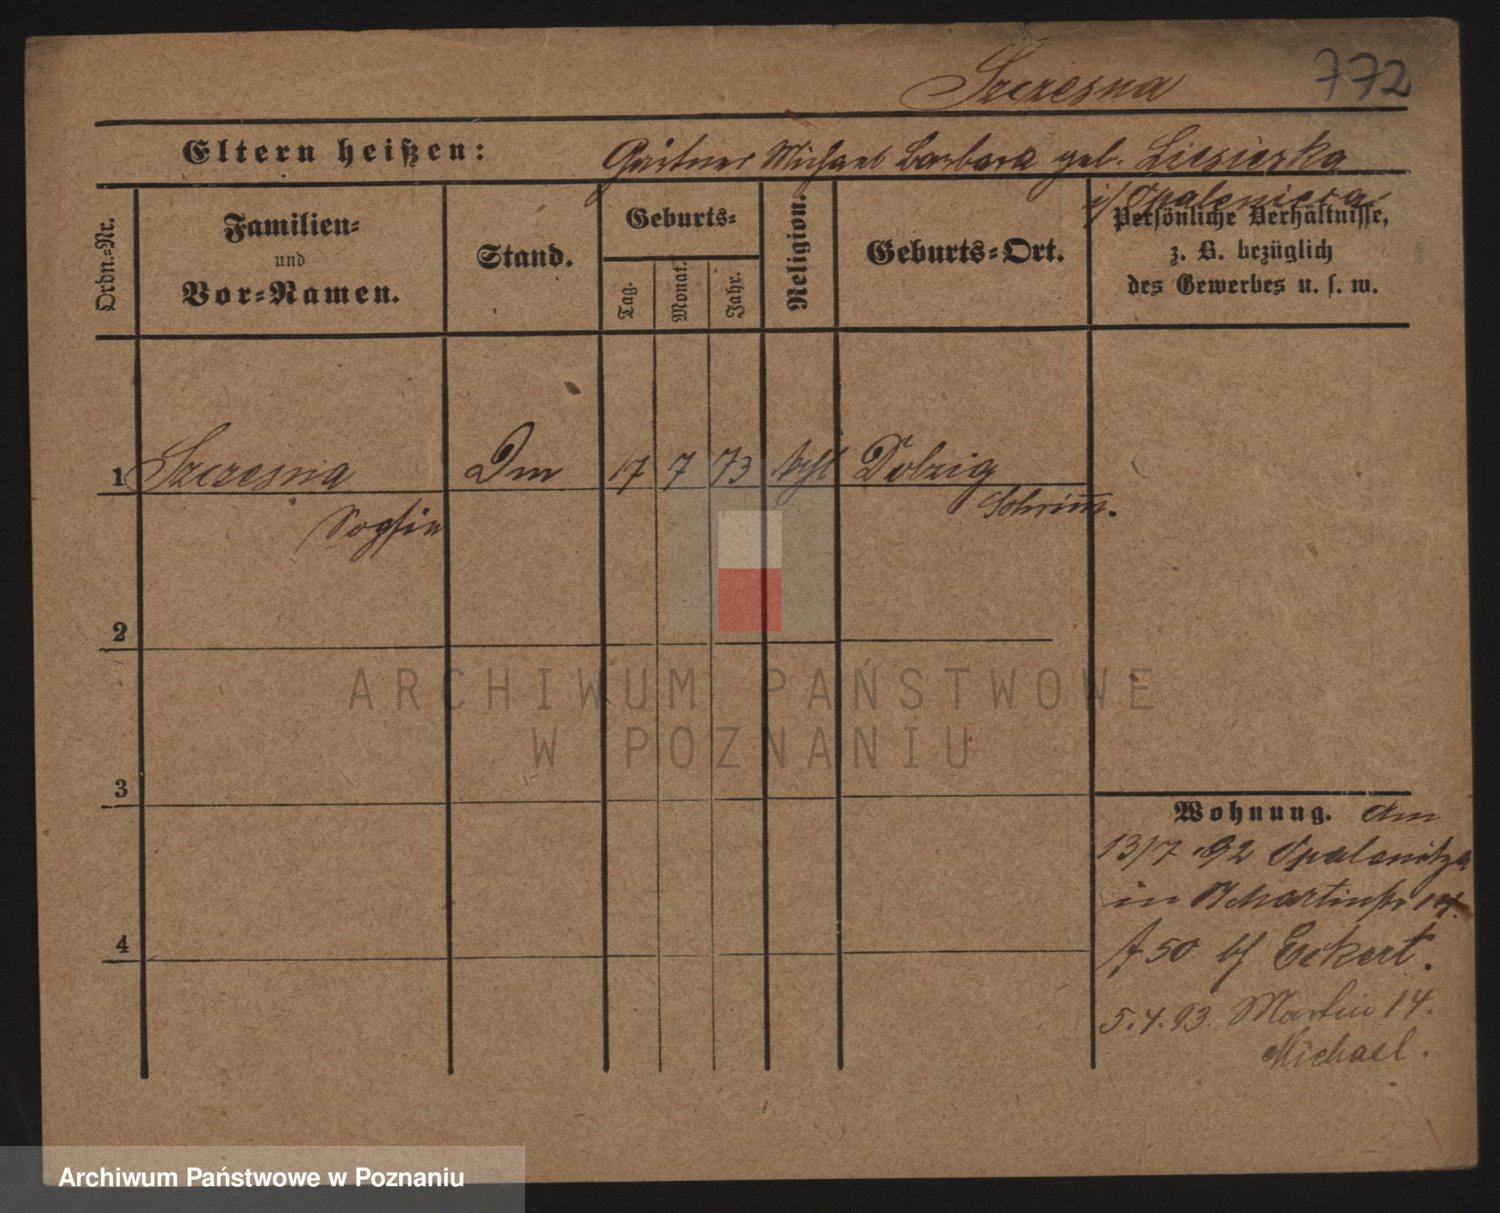 Szczesna 772
Eltern heißen: Gärtner Michael Barbara geb. Liesierka
i/ Opalenica
Ordn.-Nr.
Familien-
und
Vor-Namen.
Stand.
Geburts-
Tag.
Monat.
Jahr.
Religion.
Geburts-Ort.
Persönliche Verhältnisse,
z. B. bezüglich
des Gewerbes u. s. w.
1 Szczesna Dm 17 7 73 kath Dolzig
Sophia Schrimm.
2
3
4
Wohnung. Am
13/7 92 Opalenitza
in Martinstr 14.
f 50 bf Eckert.
5.4.93. Martin 14.
Michael.
ARCHIWUM PAŃSTWOWE
W POZNANIU
Archiwum Państwowe w Poznaniu